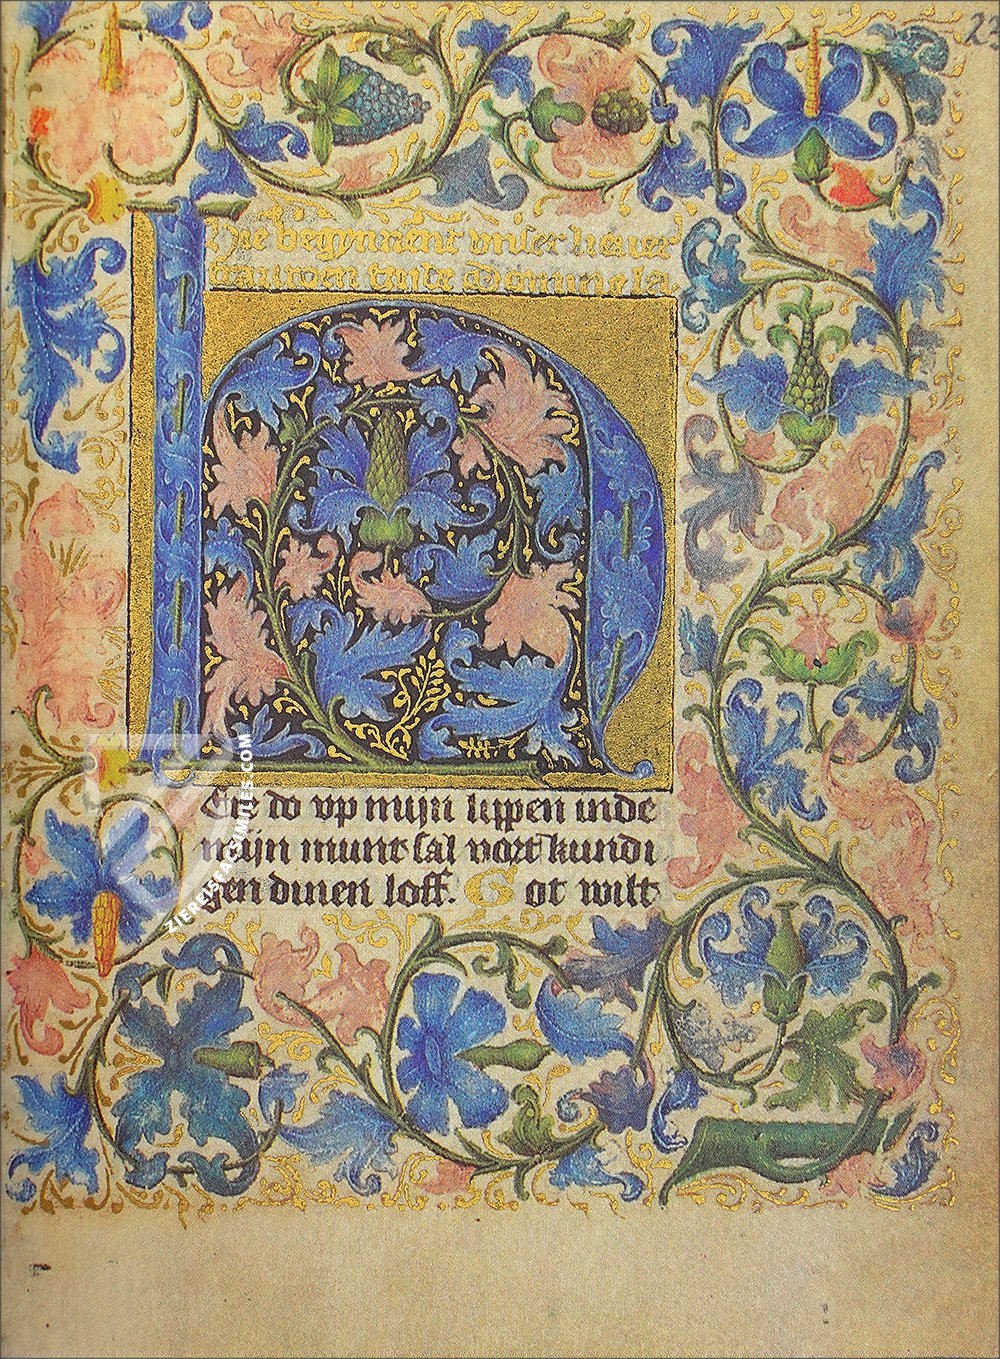 23
Hie begynnent vnser lieuer
frauwen tzyte Domine la
H
Ere do vp mijn lippen inde
mijn munt sal vort kundi
gen dinen loff. Got wilt
ZIEREIS FACSIMILES.COM